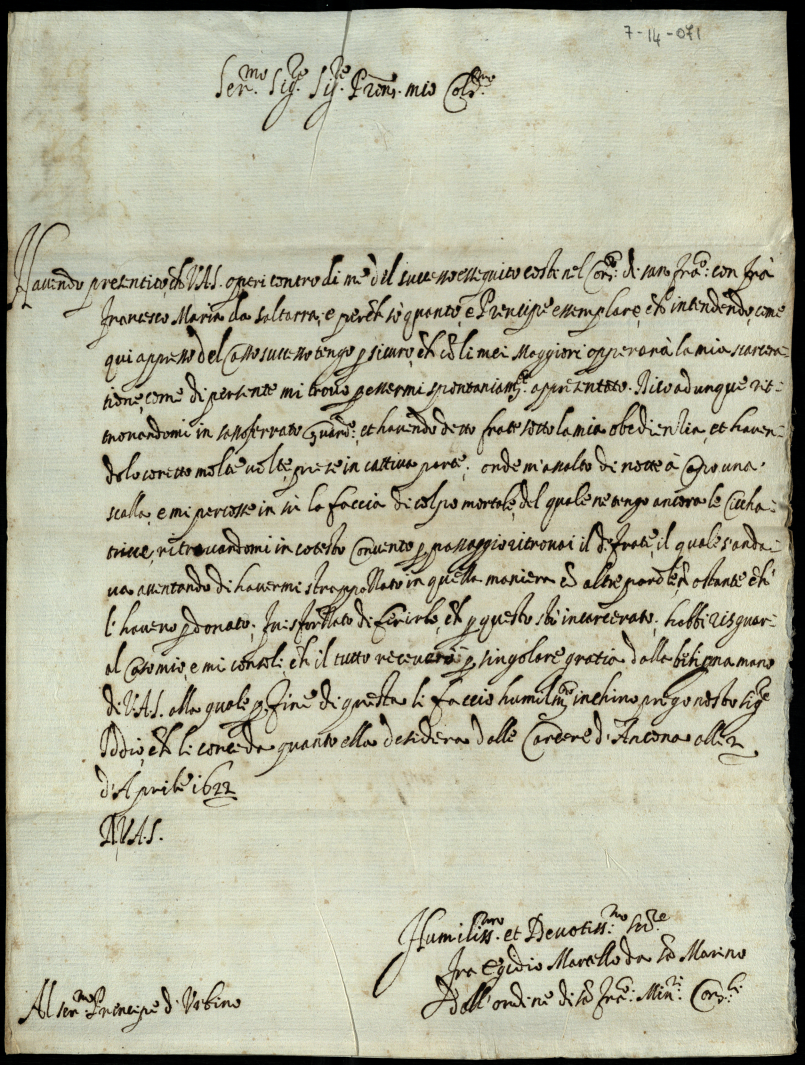 7-14-071
Ser.mo Sig.re Sig.re Prone. mio Col.mo
Havendo presentito, ch V.A.S. operi contro di me del successo esseguito costi nel Con.to di san Fra.co: con frà
Francesco Maria da Saltarra, e perch sò quanto, è Prencipe essemplare, et intendendo, come
qui appresso del Casso successo tengo p sicuro, ch cō li mei Maggiori opperarà la mia scarcera-
tione, come di persente mi trovo p essermi spontaniam.te appresentato. Dico adunque rit-
trovandomi in sassoferrato Guard.o: et havendo detto frate sotto la mia obedienzia, et haven-
dolo coretto molte volte, prese in cattiva parte; onde m'assaltò di notte à Capo una
scalla, e mi percosse in sù la faccia di colpo mortale, del quale ne tengo ancora le Ciccha-
trice, ritrovandomi in cotesto Convento p passaggio ritrovai il d.e frate, il quale s'anda-
va avantando di havermi strappallato in quella maniera cō altre parole, et ostante ch
l'haveno p donato; fui sforzato di ferirlo, ch p questo stò incarcerato; habbi risguar-
al Caso mio, e mi consoli, ch il tutto receverò p singolare gratia dalla benigna mano
di V.A.S. alla quale p fine di questa li faccio humil.mo inchino prego nostro Sig.re
Iddio, ch li conceda quanto ella desidera dalle Carcere d'Ancona alle 2
d'Aprile 1622
D.V.A.S.
Humiliss.mo et Devotiss.mo ser.re
fra Egidio Marallo da sō Marino
dall'ordine di sō Fra.co: Min.ri Con.li
Al ser.mo Principe d'Urbino